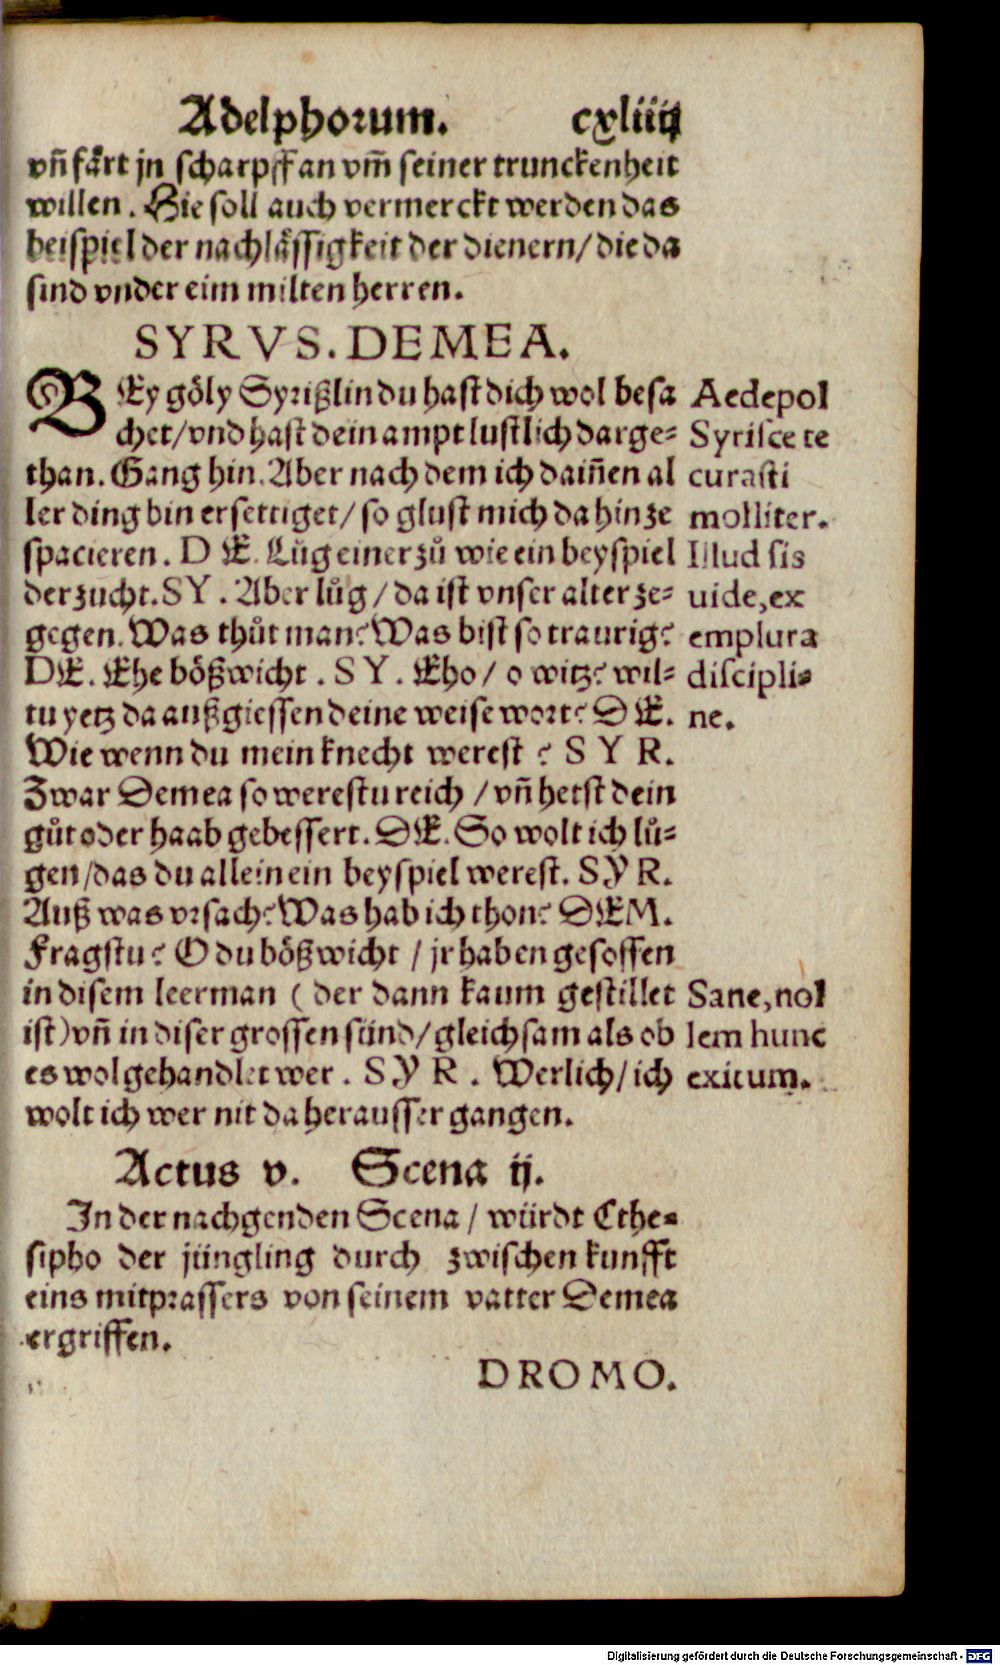 Adelphorum. cxliiij
vñ fårt jn scharpff an vm̃ seiner trunckenheit
willen. Hie soll auch vermerckt werden das
beispiel der nachlåssigkeit der dienern/ die da
sind vnder eim milten herren.
SYRVS. DEMEA.
BEy göly Syrißlin du hast dich wol besa
chet/ vnd hast dein ampt lustlich darge=
than. Gang hin. Aber nach dem ich daiñen al
ler ding bin ersettiget/ so glust mich da hin ze
spacieren. DE. Lůg einer zů wie ein beyspiel
der zucht. SY. Aber lůg/ da ist vnser alter ze=
gegen. Was thůt man? Was bist so traurig?
DE. Ehe bößwicht. SY. Eho/ o witz? wil=
tu yetz da außgiessen deine weise wort? DE.
Wie wenn du mein knecht werest? SYR.
Zwar Demea so werestu reich/ vñ hetst dein
gůt oder haab gebessert. DE. So wolt ich lů=
gen/ das du allein ein beyspiel werest. SYR.
Auß was vrsach? Was hab ich thon? DEM.
Fragstu? O du bößwicht/ jr haben gesoffen
in disem leerman (der dann kaum gestillet
ist) vñ in diser grossen sünd/ gleichsam als ob
es wol gehandlet wer. SYR. Werlich/ ich
wolt ich wer nit da herausser gangen.
Aedepol
Syrisce te
curasti
molliter.
Illud sis
uide, ex
emplura
discipli=
ne.
Sane, nol
lem hunc
exitum.
Actus v. Scena ij.
In der nachgenden Scena/ würdt Cthe=
sipho der jüngling durch zwischen kunfft
eins mitprassers von seinem vatter Demea
ergriffen.
DROMO.
Digitalisierung gefördert durch die Deutsche Forschungsgemeinschaft - DFG